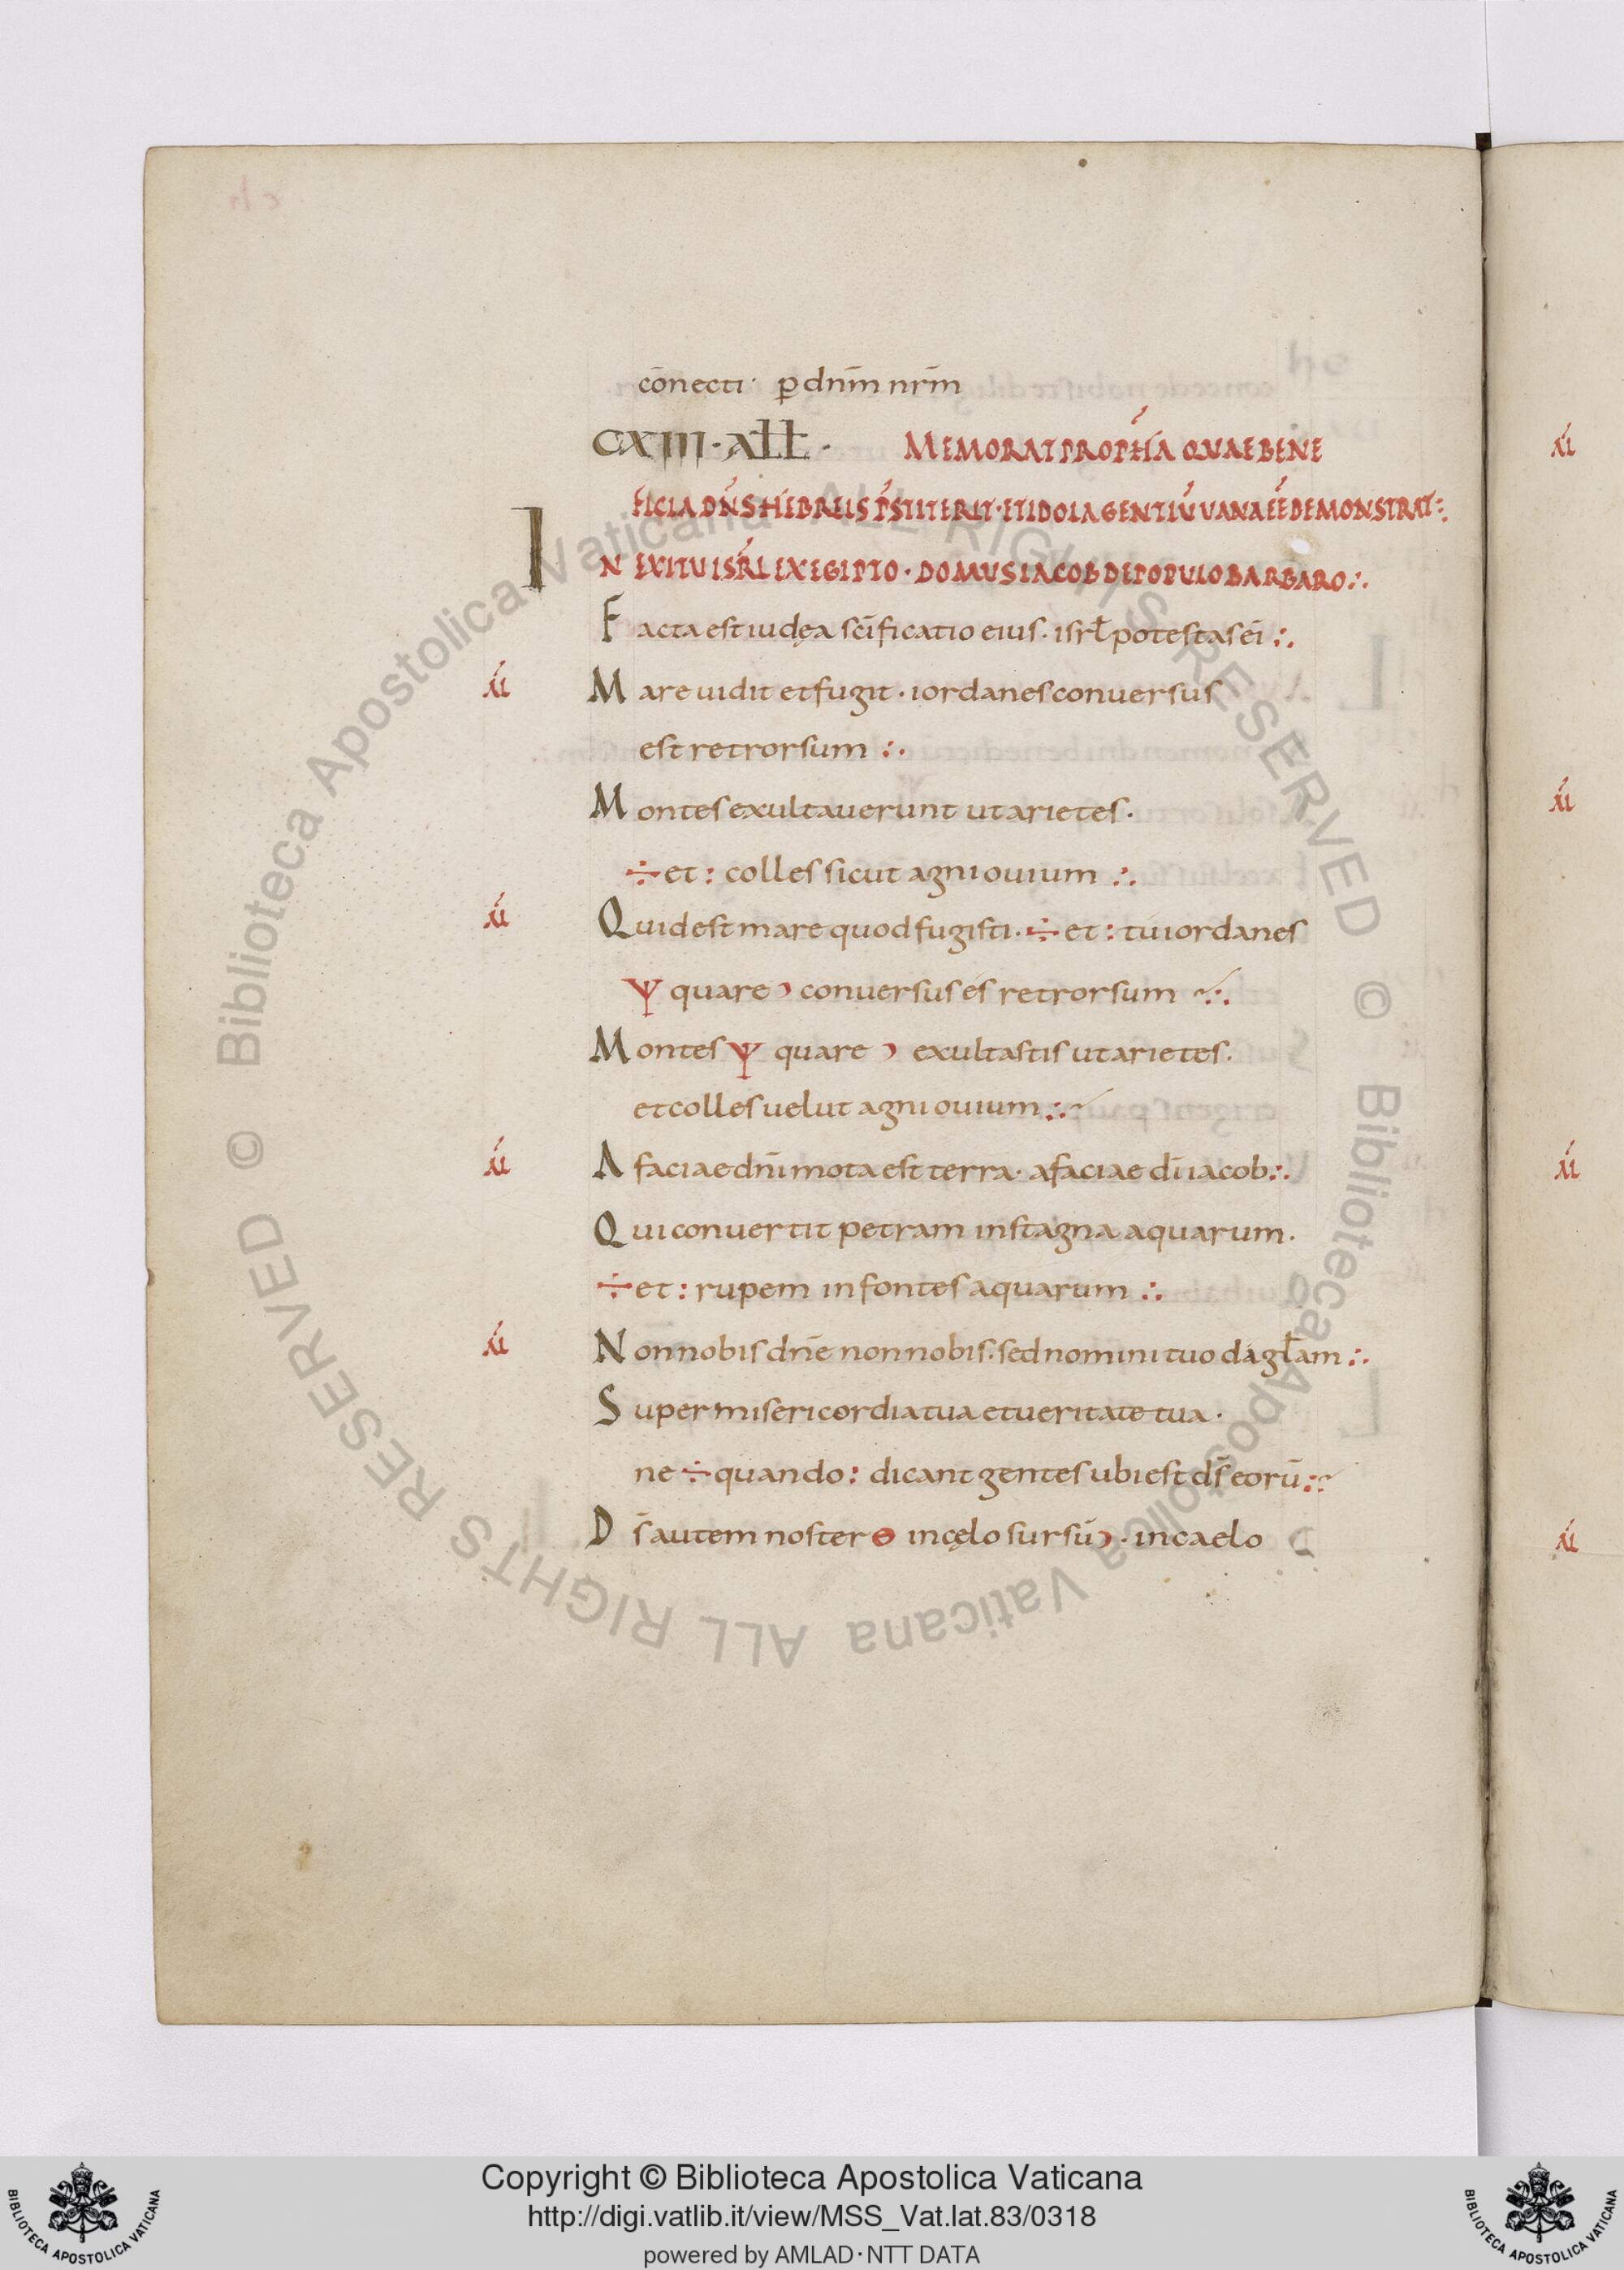 cōnecti · ꝑ dn̄m nr̄m
CXIII · aƚƚ · MEMORAT PROPHᷓA QUAE BENE
FICIA DN̄S HEBREIS P̄STITERIT · ET IDOLA GENTIŪ VANA EĒ DEMONSTRAT :.
IN EXITU ISRL̄ EX EGIPTO · DOMUS IACOB DE POPULO BARBARO :.
Facta est iudęa sc̄ificatio eius · isrƚ potestas ei :.
Mare uidit et fugit · iordanes conuersus
est retrorsum :.
Montes exultauerunt ut arietes ·
÷ et : colles sicut agni ouium :.
Quid est mare quod fugisti · ÷ et : tu iordanes
Ψ quare conuersus es retrorsum :.
Montes Ψ quare exultastis ut arietes ·
et colles uelut agni ouium :.
A faciae dn̄i mota est terra · a faciae dī iacob :.
Qui conuertit petram in stagna aquarum ·
÷ et : rupem in fontes aquarum :.
Non nobis dn̄e non nobis · sed nomini tuo da gƚam :.
Super misericordia tua et ueritate tua ·
ne ÷ quando : dicant gentes ubi est ds̄ eorū :.
Ds̄ autem noster Θ in cęlo sursū · in caelo
Copyright © Biblioteca Apostolica Vaticana
http://digi.vatlib.it/view/MSS_Vat.lat.83/0318
powered by AMLAD · NTT DATA
© Biblioteca Apostolica Vaticana ALL RIGHTS RESERVED © Biblioteca Apostolica Vaticana ALL RIGHTS RESERVED
BIBLIOTECA APOSTOLICA VATICANA
BIBLIOTECA APOSTOLICA VATICANA